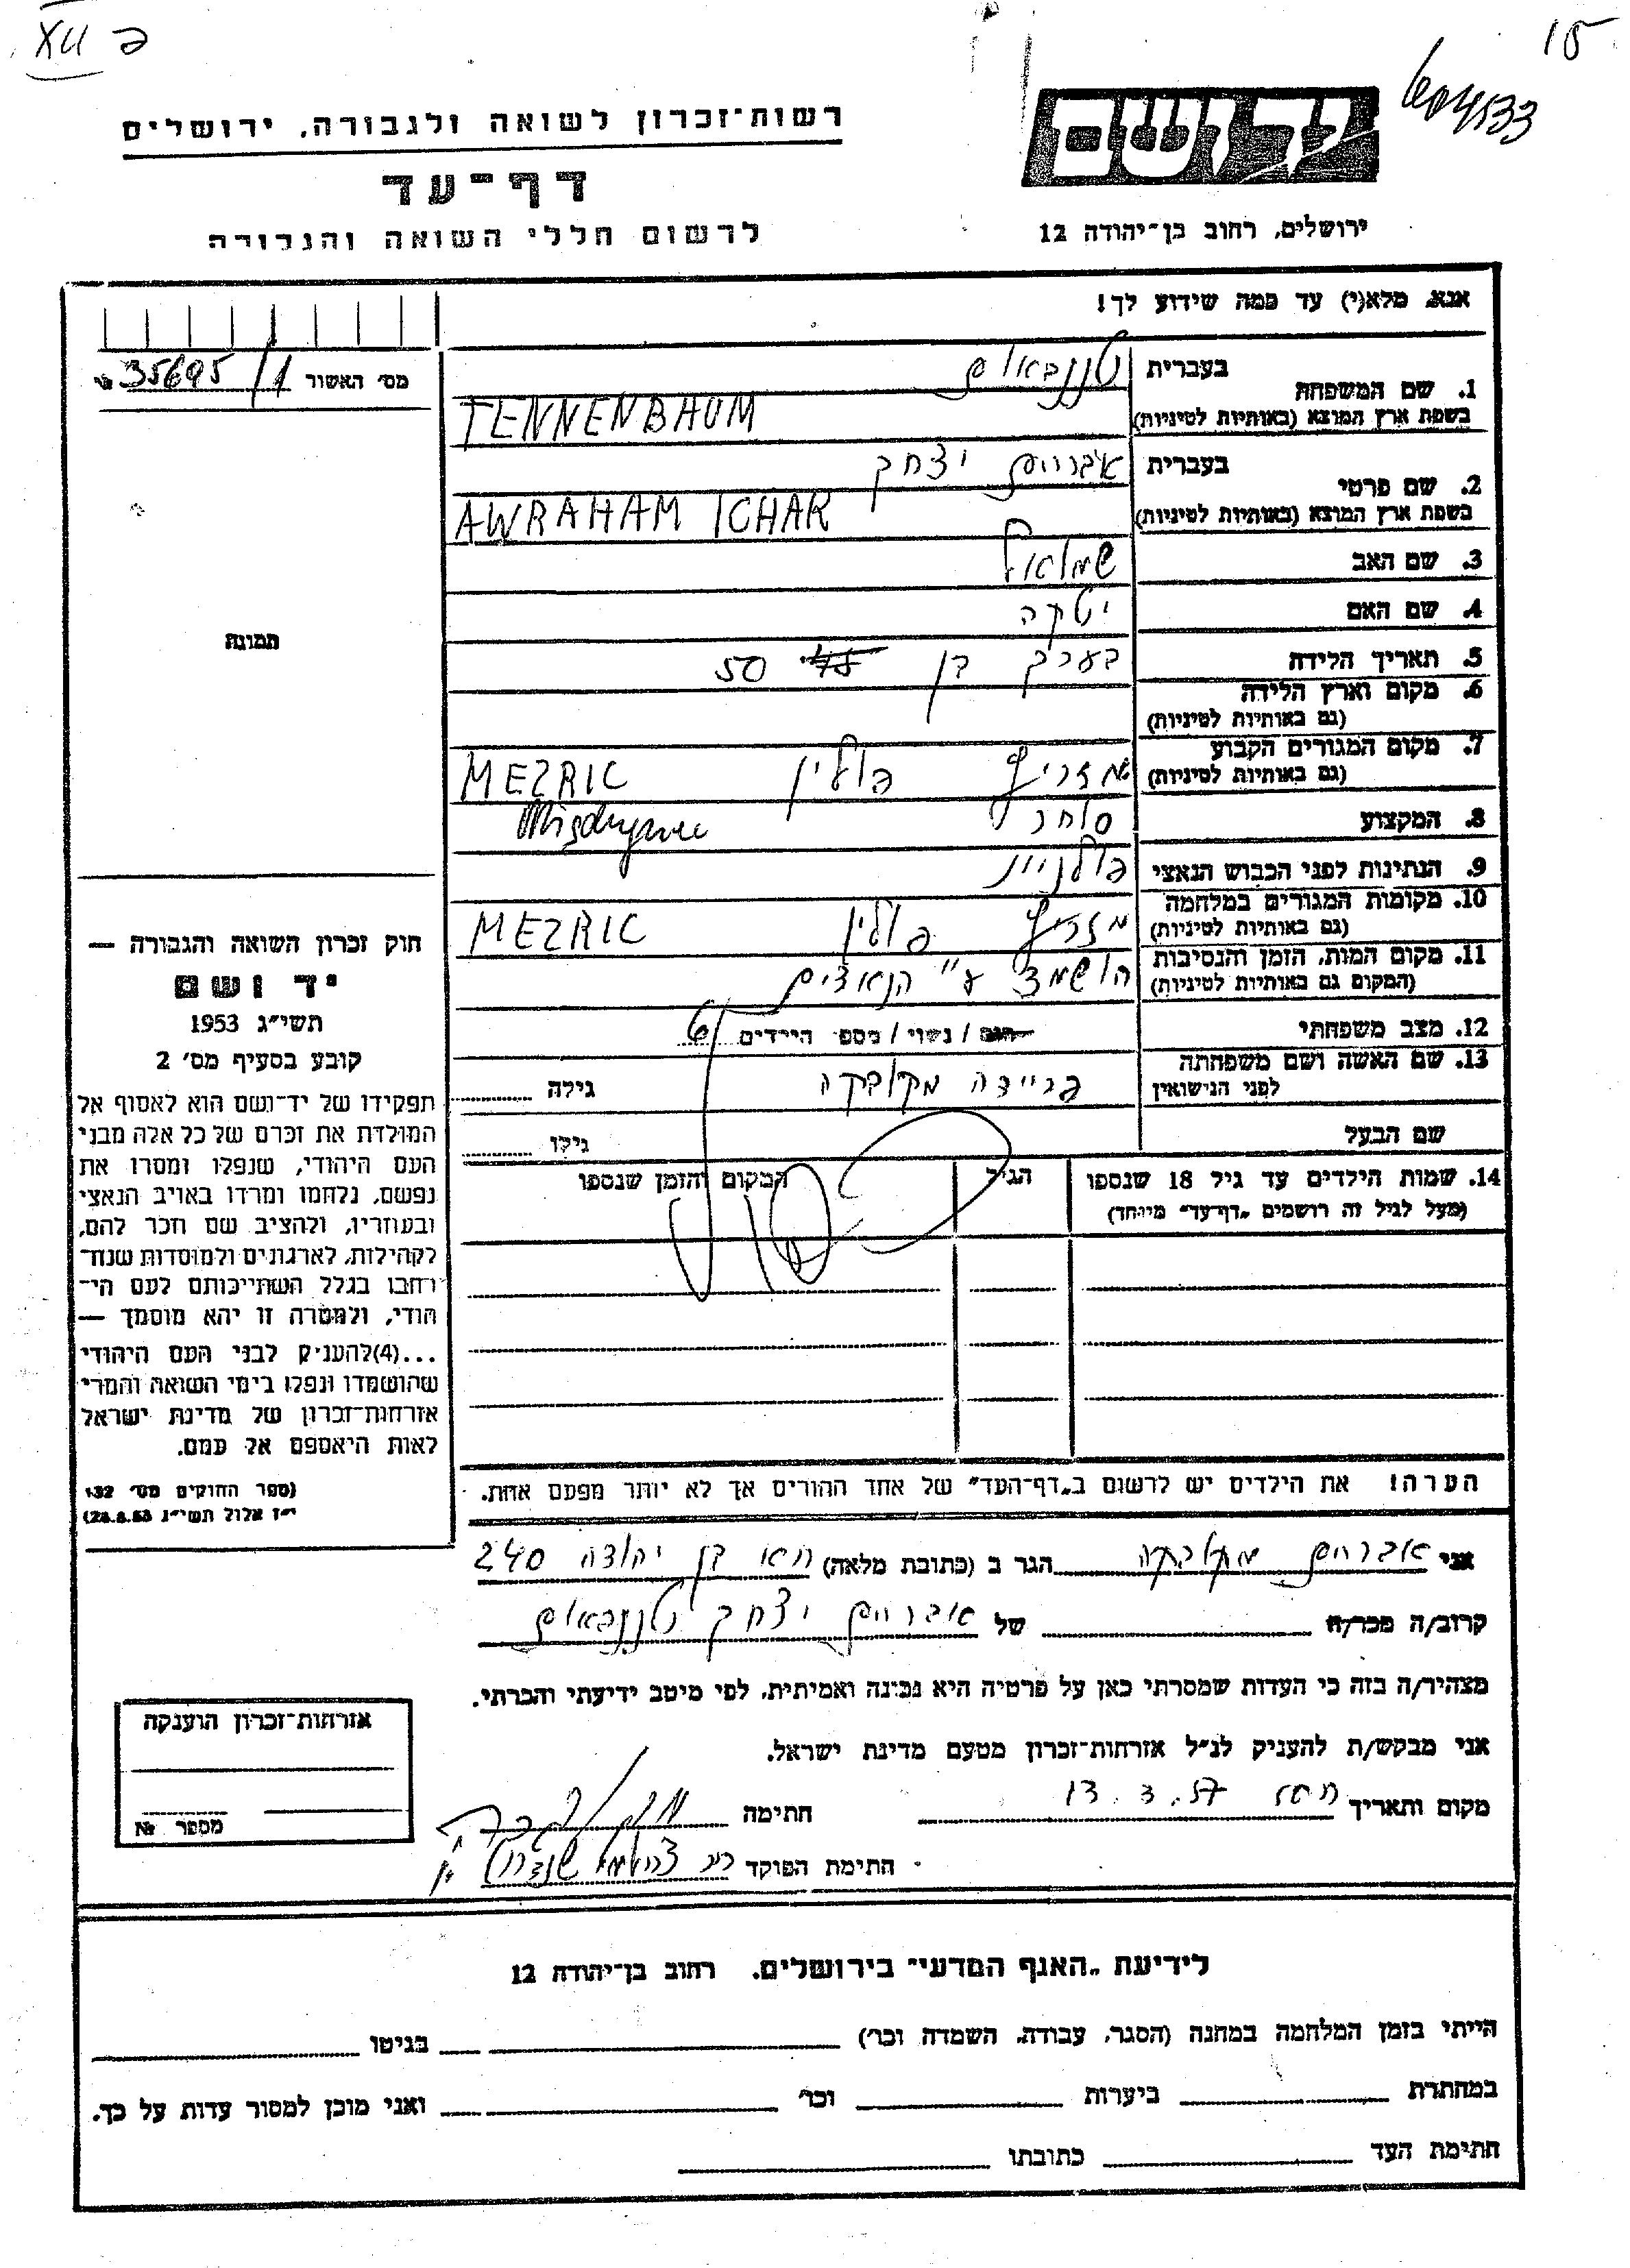 XII
15
יד ושם
רשות־זכרון לשואה ולגבורה, ירושלים
דף־עד
לרשום חללי השואה והגבורה
ירושלים, רחוב בן־יהודה 12
אנא, מלא(י) עד כמה שידוע לך!
מס׳ האשור 35695/1 №
1. שם המשפחה בעברית טננבאום
בשפת ארץ המוצא (באותיות לטיניות) TENNENBAUM
2. שם פרטי בעברית אברהם יצחק
בשפת ארץ המוצא (באותיות לטיניות) AWRAHAM ICHAK
3. שם האב שמואל
4. שם האם יטקה
5. תאריך הלידה בערך בן 50
6. מקום וארץ הלידה
(גם באותיות לטיניות)
7. מקום המגורים הקבוע מזריץ פולין MEZRIC
(גם באותיות לטיניות)
8. המקצוע סוחר
9. הנתינות לפני הכבוש הנאצי פולניית
10. מקומות המגורים במלחמה מזריץ פולין MEZRIC
(גם באותיות לטיניות)
11. מקום המות, הזמן והנסיבות הושמד ע״י הנאצים
(המקום גם באותיות לטיניות)
12. מצב משפחתי רווק / נשוי / מספר הילדים 6
13. שם האשה ושם משפחתה פריידה מקובקה גילה
לפני הנישואין
שם הבעל גילו
14. שמות הילדים עד גיל 18 שנספו הגיל המקום והזמן שנספו
(מעל לגיל זה רושמים „דף־עד״ מיוחד)
תמונה
חוק זכרון השואה והגבורה —
יד ושם
תשי״ג 1953
קובע בסעיף מס׳ 2
תפקידו של יד־ושם הוא לאסוף אל
המולדת את זכרם של כל אלה מבני
העם היהודי, שנפלו ומסרו את
נפשם, נלחמו ומרדו באויב הנאצי
ובעוזריו, ולהציב שם וזכר להם,
לקהילות, לארגונים ולמוסדות שנח־
רבו בגלל השתייכותם לעם הי־
הודי, ולמטרה זו יהא מוסמך —
...(4)להעניק לבני העם היהודי
שהושמדו ונפלו בימי השואה והמרי
אזרחות־זכרון של מדינת ישראל
לאות היאספם אל עמם.
(ספר החוקים מס׳ 132
י״ז אלול תשי״ג 28.8.53)
הערה! את הילדים יש לרשום ב„דף־העד״ של אחד ההורים אך לא יותר מפעם אחת.
אני אברהם מקובקה הגר ב (כתובת מלאה) ת״א בן יהודה 240
קרוב/ה מכר/ה של אברהם יצחק טננבאום
מצהיר/ה בזה כי העדות שמסרתי כאן על פרטיה היא נכונה ואמיתית, לפי מיטב ידיעתי והכרתי.
אני מבקש/ת להעניק לנ״ל אזרחות־זכרון מטעם מדינת ישראל.
מקום ותאריך 13.3.57 חתימה
חתימת הפוקד
אזרחות־זכרון הוענקה
מספר №
לידיעת „האגף המדעי״ בירושלים. רחוב בן־יהודה 12
הייתי בזמן המלחמה במחנה (הסגר, עבודה, השמדה וכו׳) בגיטו
במחתרת ביערות וכו׳ ואני מוכן למסור עדות על כך.
חתימת העד כתובתו